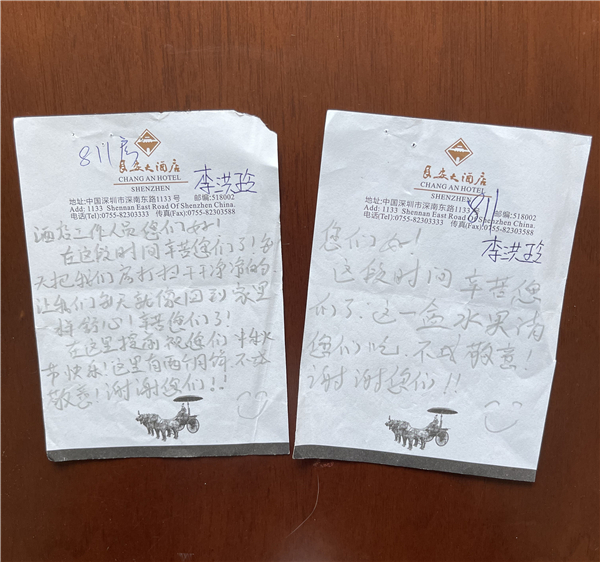 811房
長安大酒店
CHANG AN HOTEL
SHENZHEN
李洪玲
地址:中国深圳市深南东路1133 号 邮编:518002
Add: 1133 Shennan East Road Of Shenzhen China.
电话(Tel):0755-82303333 传真(Fax):0755-82303588
酒店工作人员您们好!
在这段时间辛苦您们了!每
天把我们房打扫干干净净的,
让我们每天就像回到家里
一样舒心!辛苦您们了!
在这里提前祝您们中秋
节快乐!这里有两个月饼,不成
敬意!谢谢您们!!
長安大酒店
CHANG AN HOTEL
SHENZHEN
地址:中国深圳市深南东路1133 邮编:518002
Add: 1133 Shennan East Road Of Shenzhen China.
电话(Tel):0755-82303333 传真(Fax):0755-82303588
811
李洪玲
您们好!
这段时间辛苦您
们了,这一盒水果请
您们吃,不成敬意!
谢谢您们!!